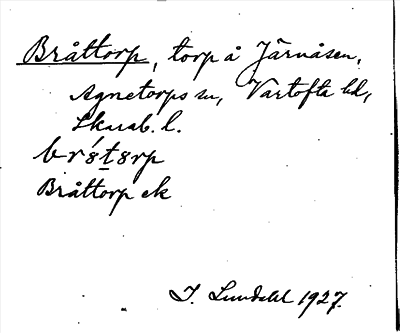 Bråttorp, torp å Järnåsen,
Agnetorps sn, Vartofta hd,
Skarab. l.
Bråttorp ek
I. Lundahl 1927.